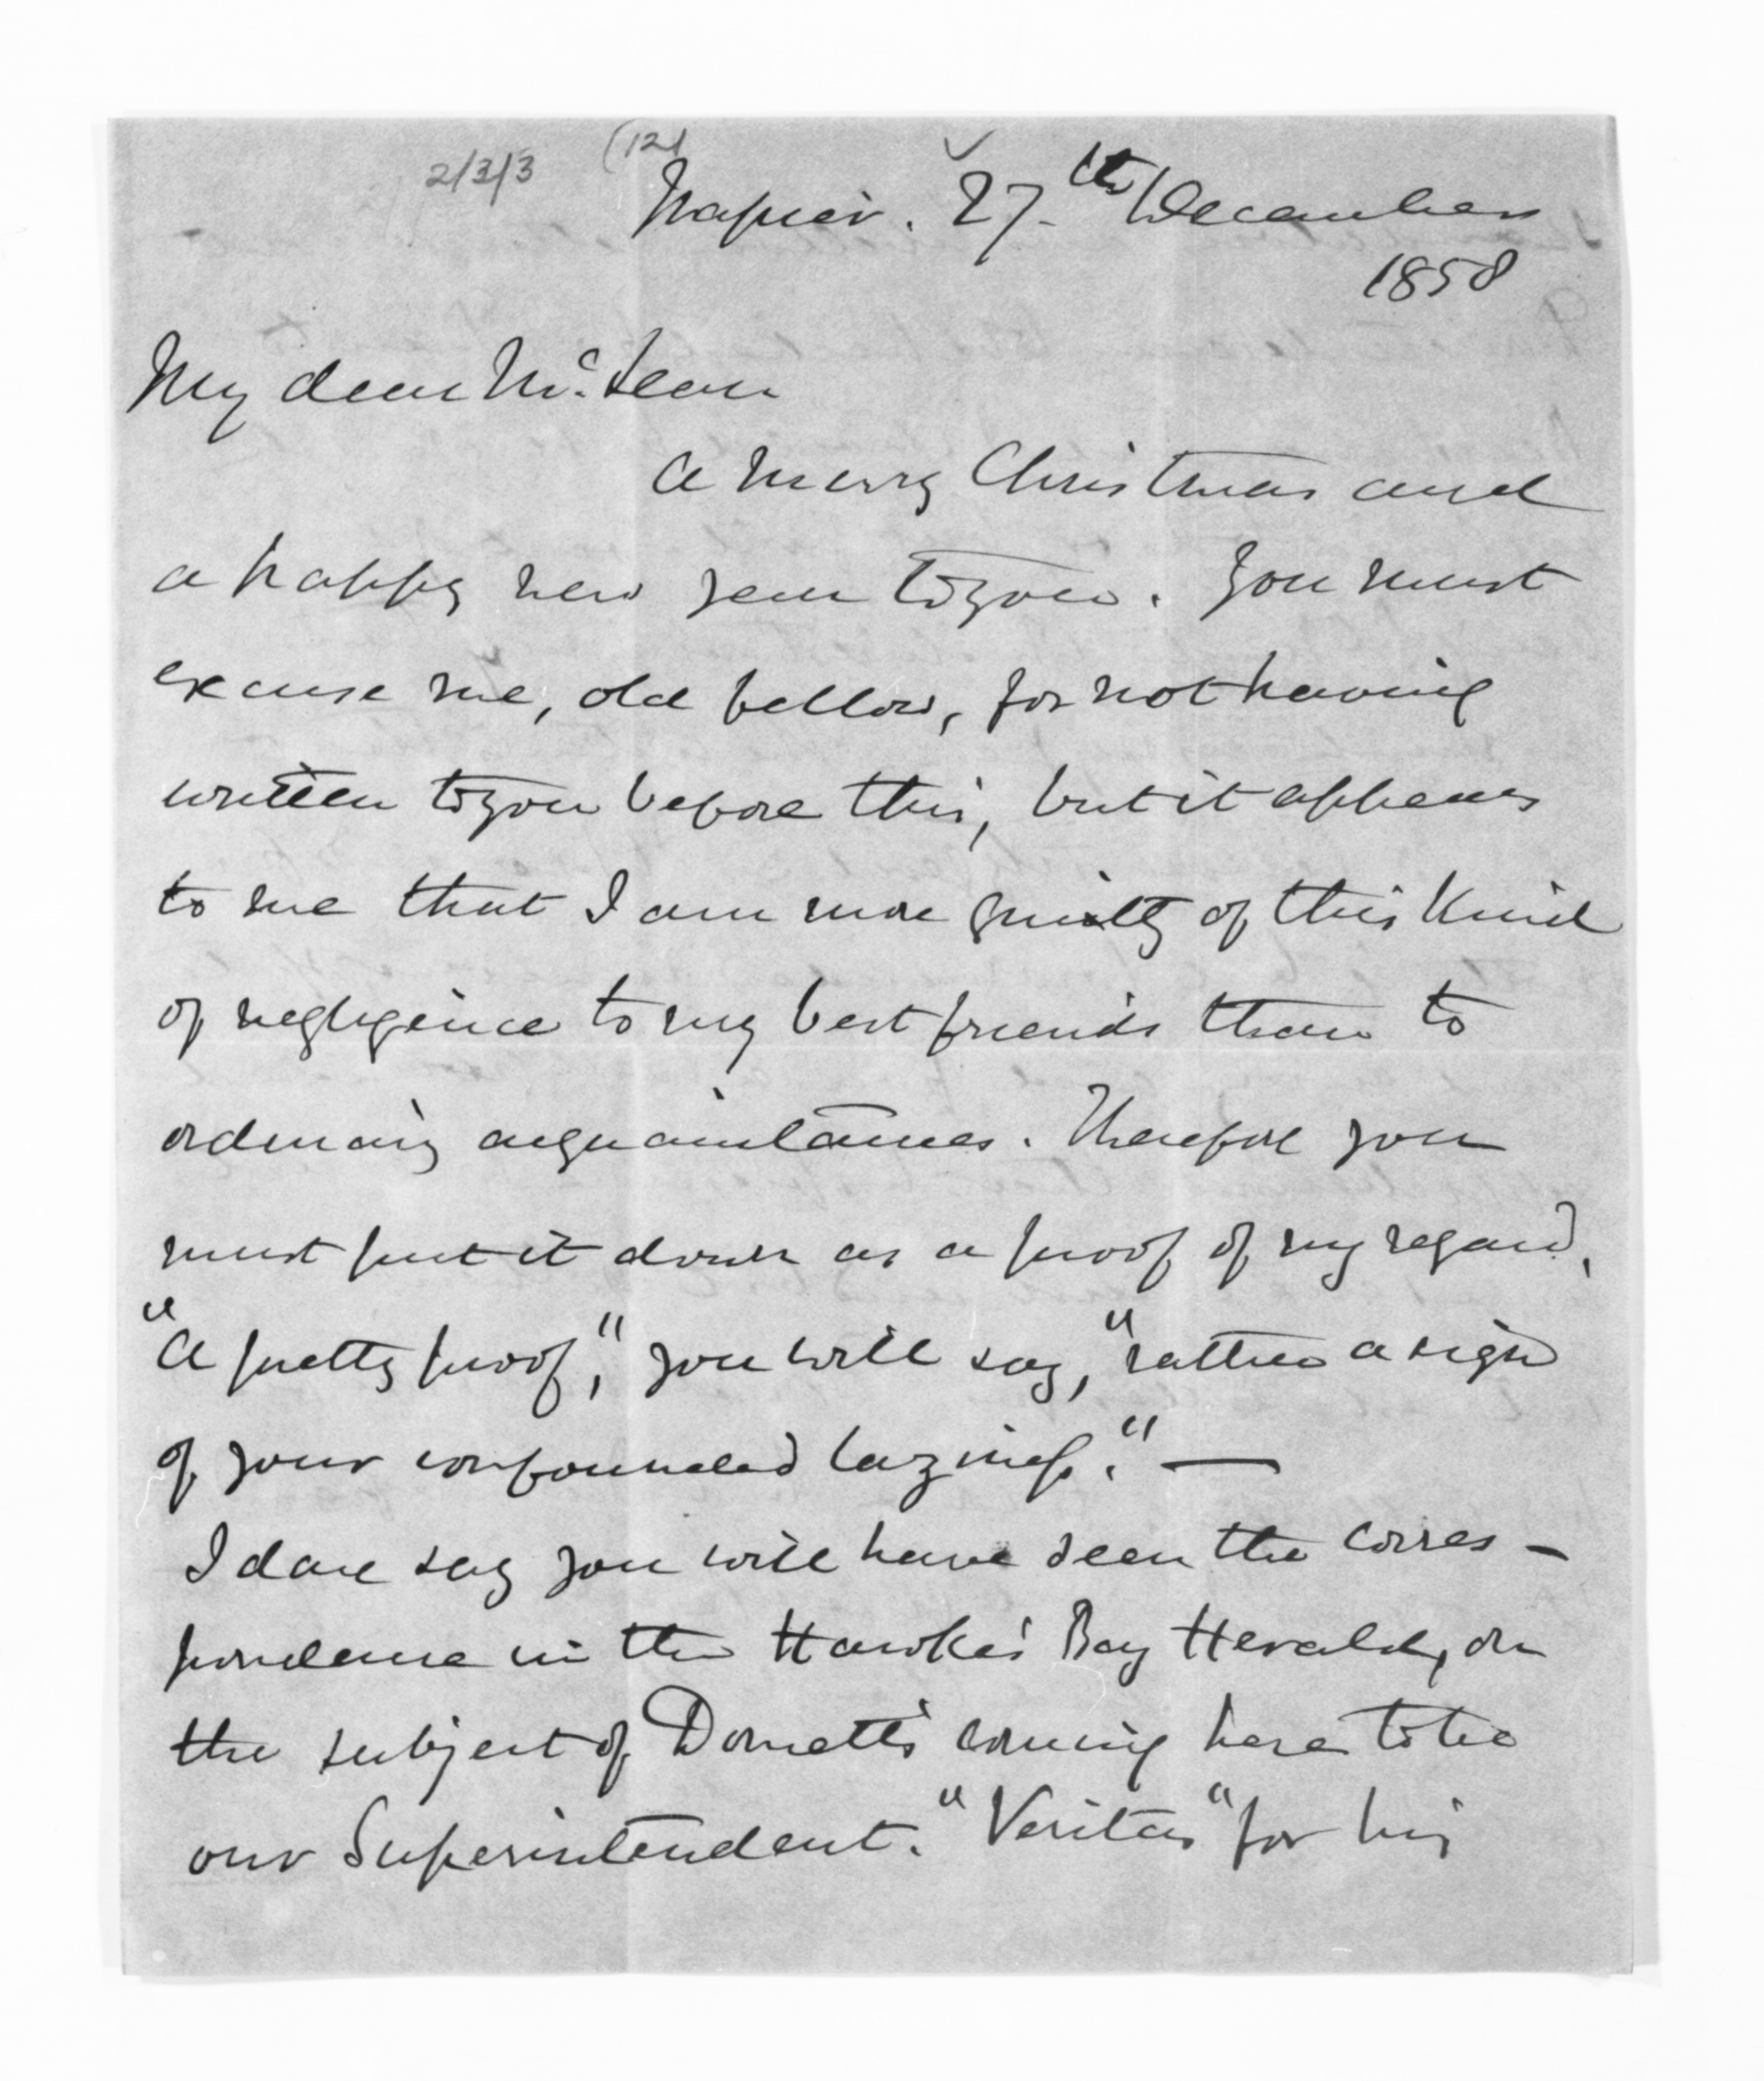 2/3/3 (12)
Napier. 27th December
1858
My dear McLean
A merry Christmas and
a happy new year to you. You must
excuse me, old fellow, for not having
written to you before this, but it appears
to me that I am more guilty of this kind
of negligence to my best friends than to
ordinary acquaintances. Therefore you
must put it down as a proof of my regard.
"A pretty proof," you will say, "rather a sign
of your confounded laziness." —
I dare say you will have seen the corres-
pondence in the Hawke's Bay Herald, on
the subject of Domett's coming here to be
our Superintendent. "Veritas" for his